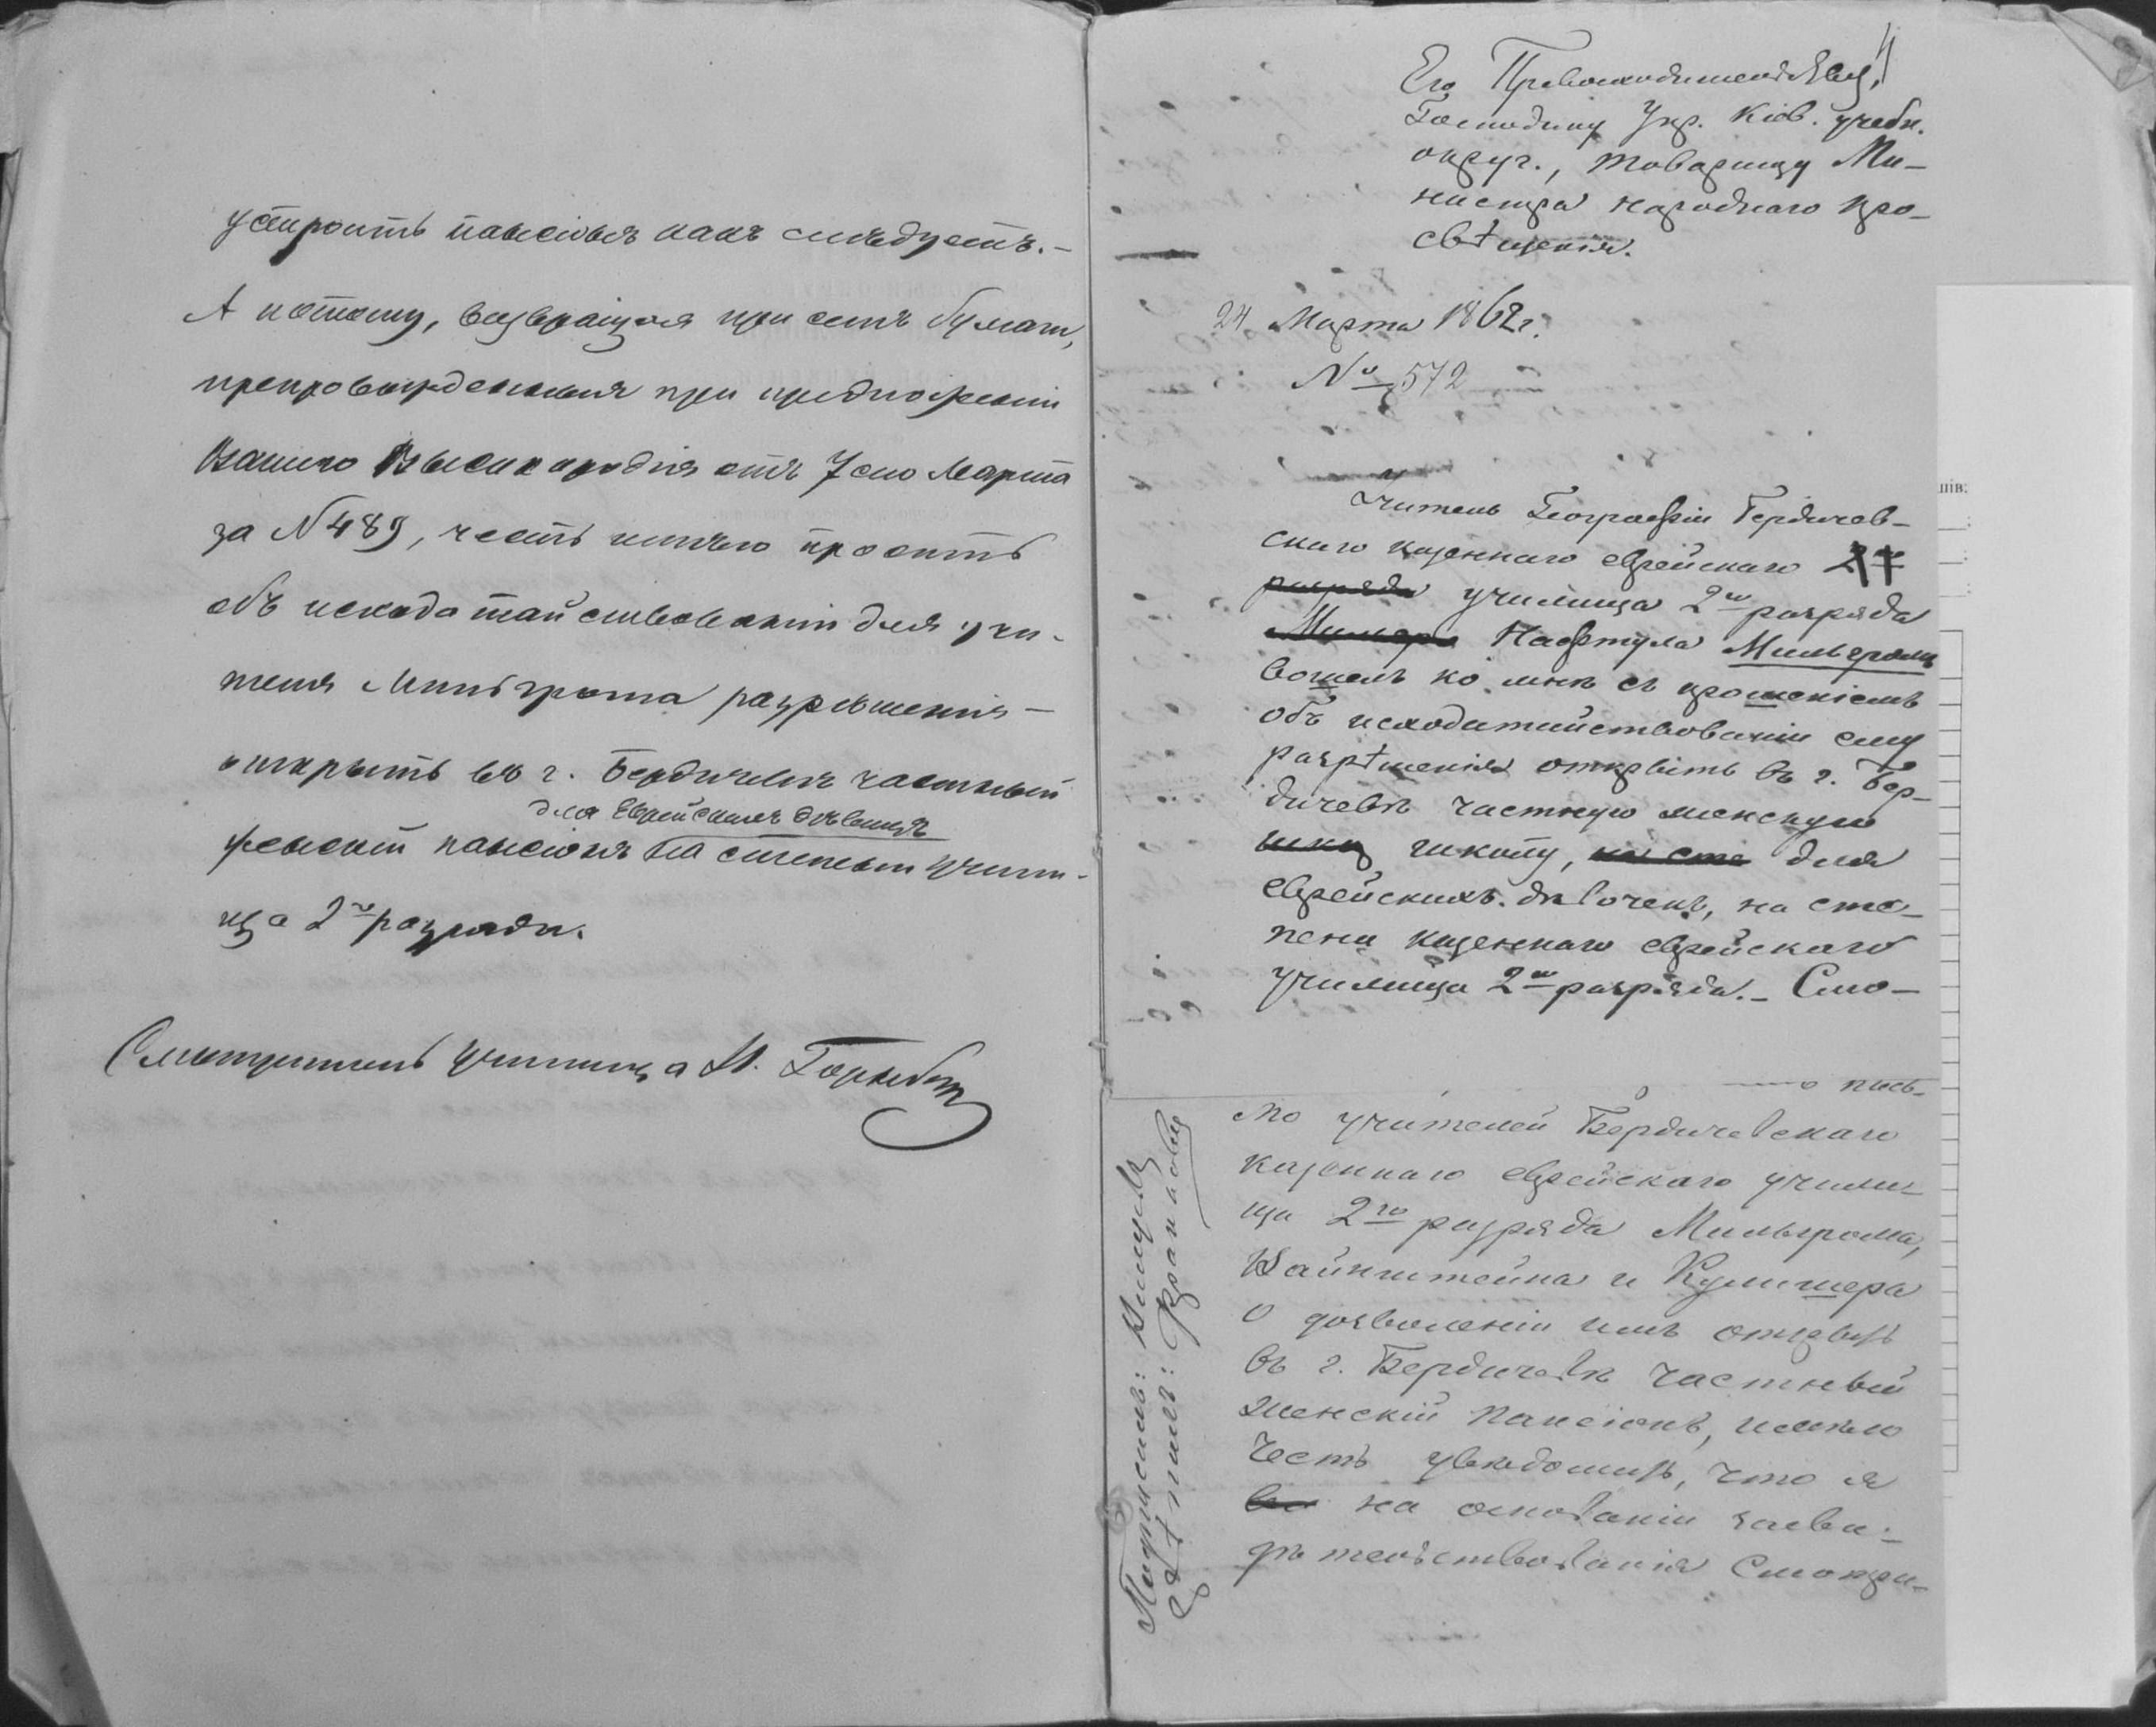 устроить пансіонъ какъ слѣдуетъ.—
А потому, возвращая при семъ бумаги,
препровожденныя при предложеніи
Вашего Высокородія отъ 7го Марта
за № 489, честь имѣю просить
объ исходатайствованіи для учи-
теля Мильгрома разрѣшенія —
открыть въ г. Бердичевѣ частный
для Еврейскихъ дѣвицъ
женскій пансіонъ на степени учили-
ща 2го разряда.
Смотритель училища
4
Его Превосходительству,
Господину Упр. Кіев. учебн.
округ., Товарищу Ми-
нистра народнаго про-
свѣщенія.
24 Марта 1862 г.
№ 572
Учитель Географіи Бердичев-
скаго казеннаго еврейскаго
разряда училища 2го разряда
Нафтула Мильгромъ
вошелъ ко мнѣ съ прошеніемъ
объ исходатайствованіи ему
разрѣшенія открыть въ г. Бер-
дичевѣ частную женскую
школу, на сте для
еврейскихъ дѣвочекъ, на сте-
пени казеннаго еврейскаго
училища 2го разряда.— Смо-
пись-
мо учителей Бердичевскаго
казеннаго еврейскаго учили-
ща 2го разряда Мильгрома,
Вайнштейна и Кулишера
о дозволеніи имъ открыть
въ г. Бердичевѣ частный
женскій пансіонъ, имѣю
честь увѣдомить, что я
на основаніи засви-
дѣтельствованія Смотри-
Подписалъ:
Скрѣпилъ: